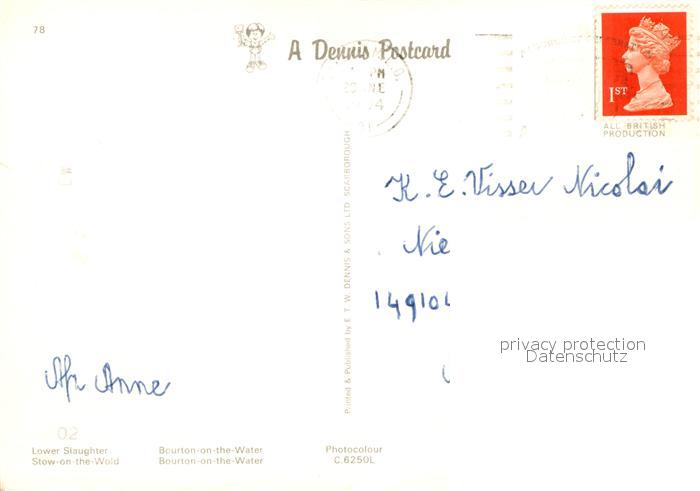 78
A Dennis Postcard
PM
1ST
ALL BRITISH
PRODUCTION
K. E. Visser Nicolai
Nie
14910
Anne
privacy protection
Datenschutz
Printed & Published by E. T. W. DENNIS & SONS LTD. SCARBOROUGH
02
Lower Slaughter Bourton-on-the-Water Photocolour
Stow-on-the-Wold Bourton-on-the-Water C.6250L